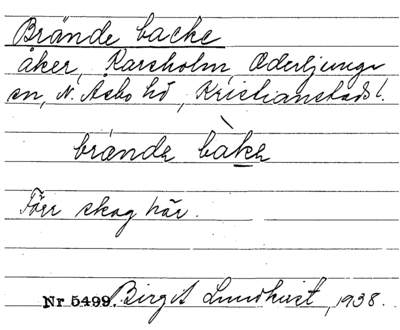 Brände backe
åker, Karsholm, Oderljunga
sn, N. Åsbo hd, Kristianstads l.
brände bàke
Förr skog här.
Nr 5499. Birgit Lundkvist, 1938.